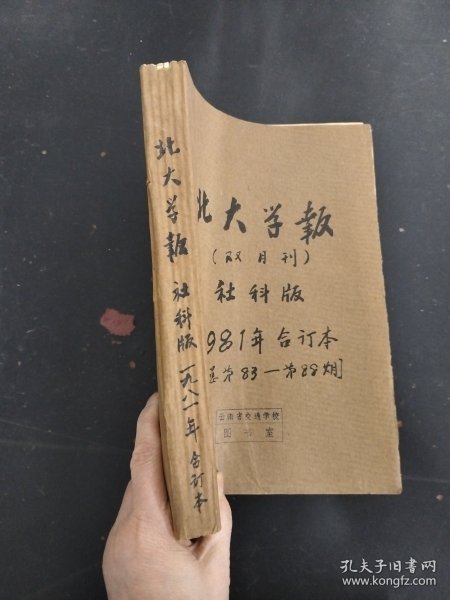 北大学報 社科版 一九八一年 合订本
北大学報
(双月刊)
社科版
981年合订本
总第83—第88期]
云南省交通学校
图书室
孔夫子旧书网
www.kongfz.com